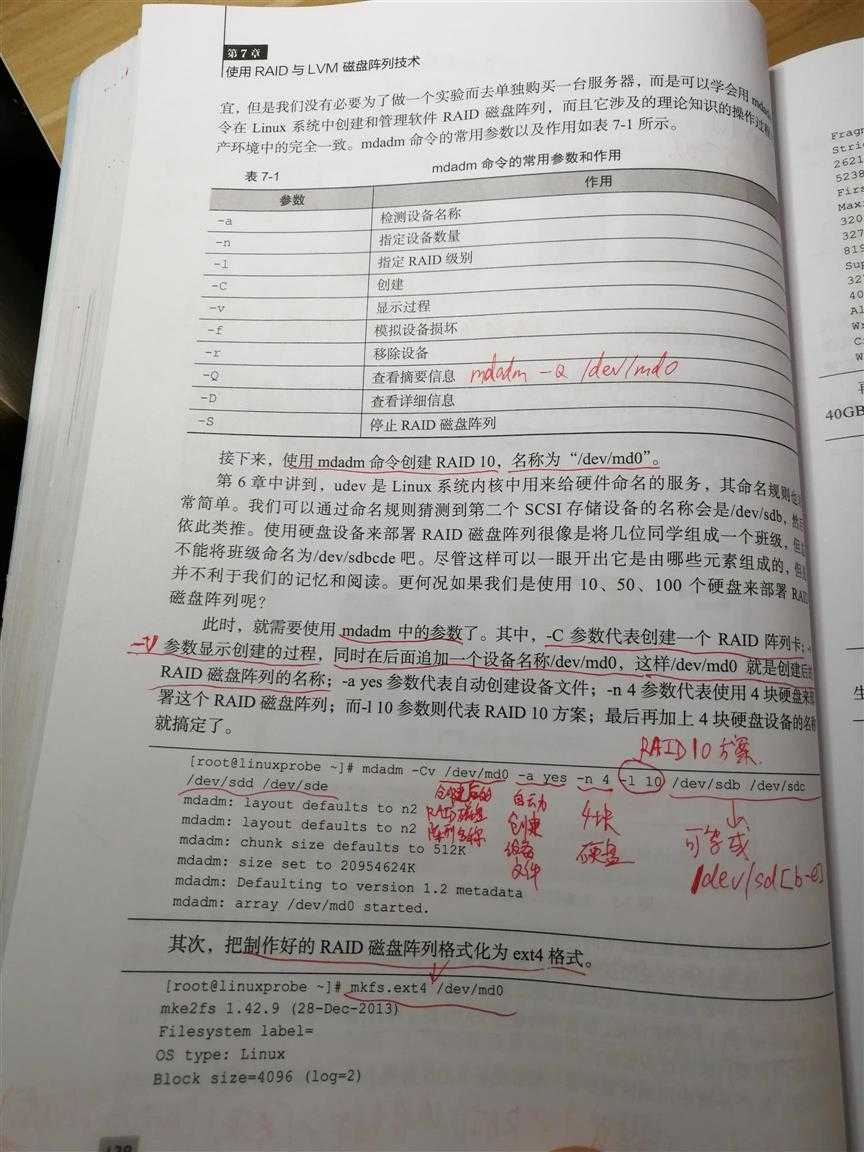 第7章
使用 RAID 与 LVM 磁盘阵列技术
宜，但是我们没有必要为了做一个实验而去单独购买一台服务器，而是可以学会用 mdadm
令在 Linux 系统中创建和管理软件 RAID 磁盘阵列，而且它涉及的理论知识的操作过程
产环境中的完全一致。mdadm 命令的常用参数以及作用如表 7-1 所示。
表 7-1
mdadm 命令的常用参数和作用
参数 作用
-a 检测设备名称
-n 指定设备数量
-l 指定 RAID 级别
-C 创建
-v 显示过程
-f 模拟设备损坏
-r 移除设备
-Q 查看摘要信息 mdadm -Q /dev/md0
-D 查看详细信息
-S 停止 RAID 磁盘阵列
接下来，使用 mdadm 命令创建 RAID 10，名称为“/dev/md0”。
第 6 章中讲到，udev 是 Linux 系统内核中用来给硬件命名的服务，其命名规则也
常简单。我们可以通过命名规则猜测到第二个 SCSI 存储设备的名称会是/dev/sdb，然后
依此类推。使用硬盘设备来部署 RAID 磁盘阵列很像是将几位同学组成一个班级，但
不能将班级命名为/dev/sdbcde 吧。尽管这样可以一眼开出它是由哪些元素组成的，但
并不利于我们的记忆和阅读。更何况如果我们是使用 10、50、100 个硬盘来部署 RAI
磁盘阵列呢？
此时，就需要使用 mdadm 中的参数了。其中，-C 参数代表创建一个 RAID 阵列卡；
-v 参数显示创建的过程，同时在后面追加一个设备名称/dev/md0，这样/dev/md0 就是创建后的
RAID 磁盘阵列的名称；-a yes 参数代表自动创建设备文件；-n 4 参数代表使用 4 块硬盘来部
署这个 RAID 磁盘阵列；而-l 10 参数则代表 RAID 10 方案；最后再加上 4 块硬盘设备的名称
就搞定了。
RAID 10 方案
[root@linuxprobe ~]# mdadm -Cv /dev/md0 -a yes -n 4 -l 10 /dev/sdb /dev/sdc
/dev/sdd /dev/sde
创建后的
RAID磁盘
阵列名称
自动
创建
设备
文件
4块
硬盘
可写成
/dev/sd[b-e]
mdadm: layout defaults to n2
mdadm: layout defaults to n2
mdadm: chunk size defaults to 512K
mdadm: size set to 20954624K
mdadm: Defaulting to version 1.2 metadata
mdadm: array /dev/md0 started.
其次，把制作好的 RAID 磁盘阵列格式化为 ext4 格式。
[root@linuxprobe ~]# mkfs.ext4 /dev/md0
mke2fs 1.42.9 (28-Dec-2013)
Filesystem label=
OS type: Linux
Block size=4096 (log=2)
Fragm
Stri
2621
5238
Firs
Max
320
327
819
Sup
32
40
Al
W
C
W
40GB
生